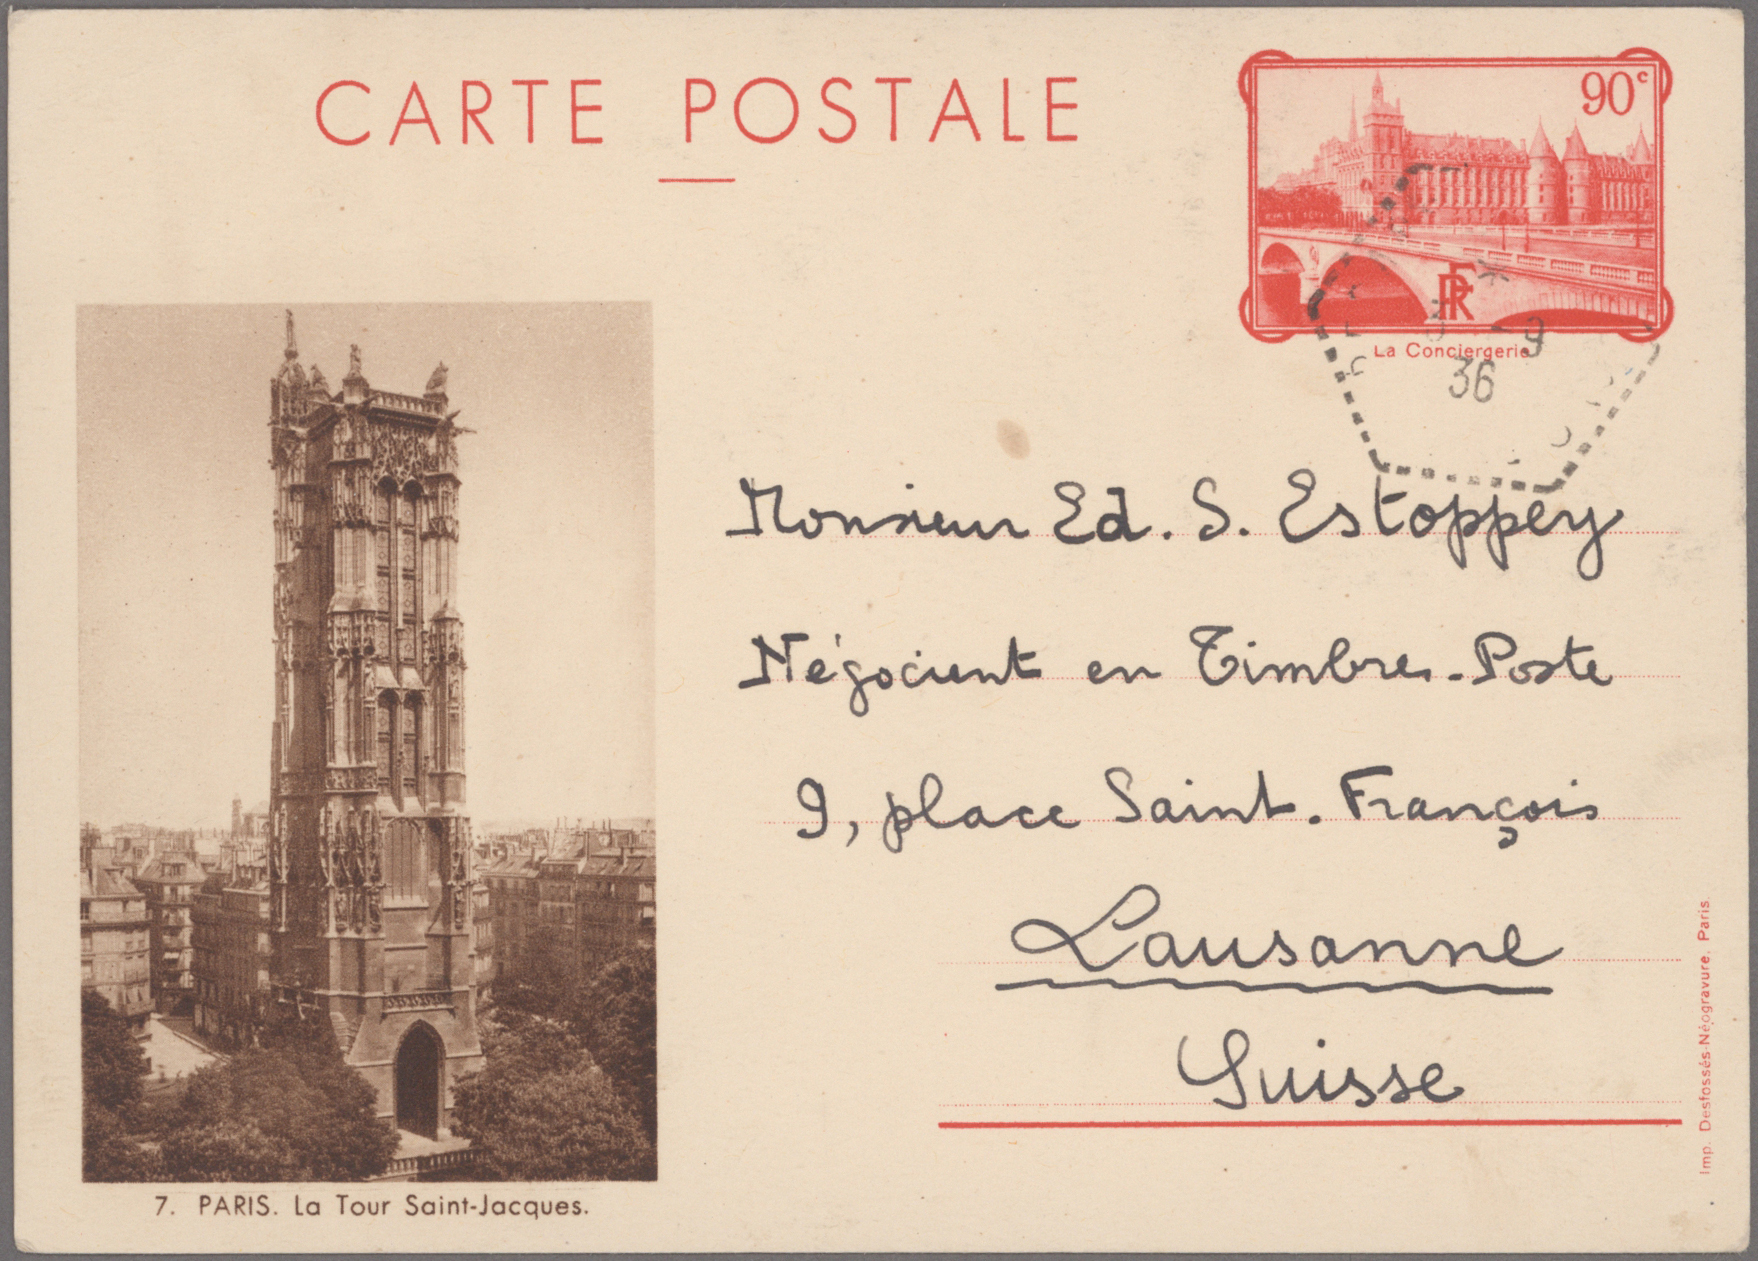 CARTE POSTALE
90c
RF
La Conciergerie
-9
36
Monsieur Ed. S. Estoppey
Négociant en Timbres-Poste
9, place Saint-François
Lausanne
Suisse
7. PARIS. La Tour Saint-Jacques.
Imp. Desfossés-Néogravure. Paris.